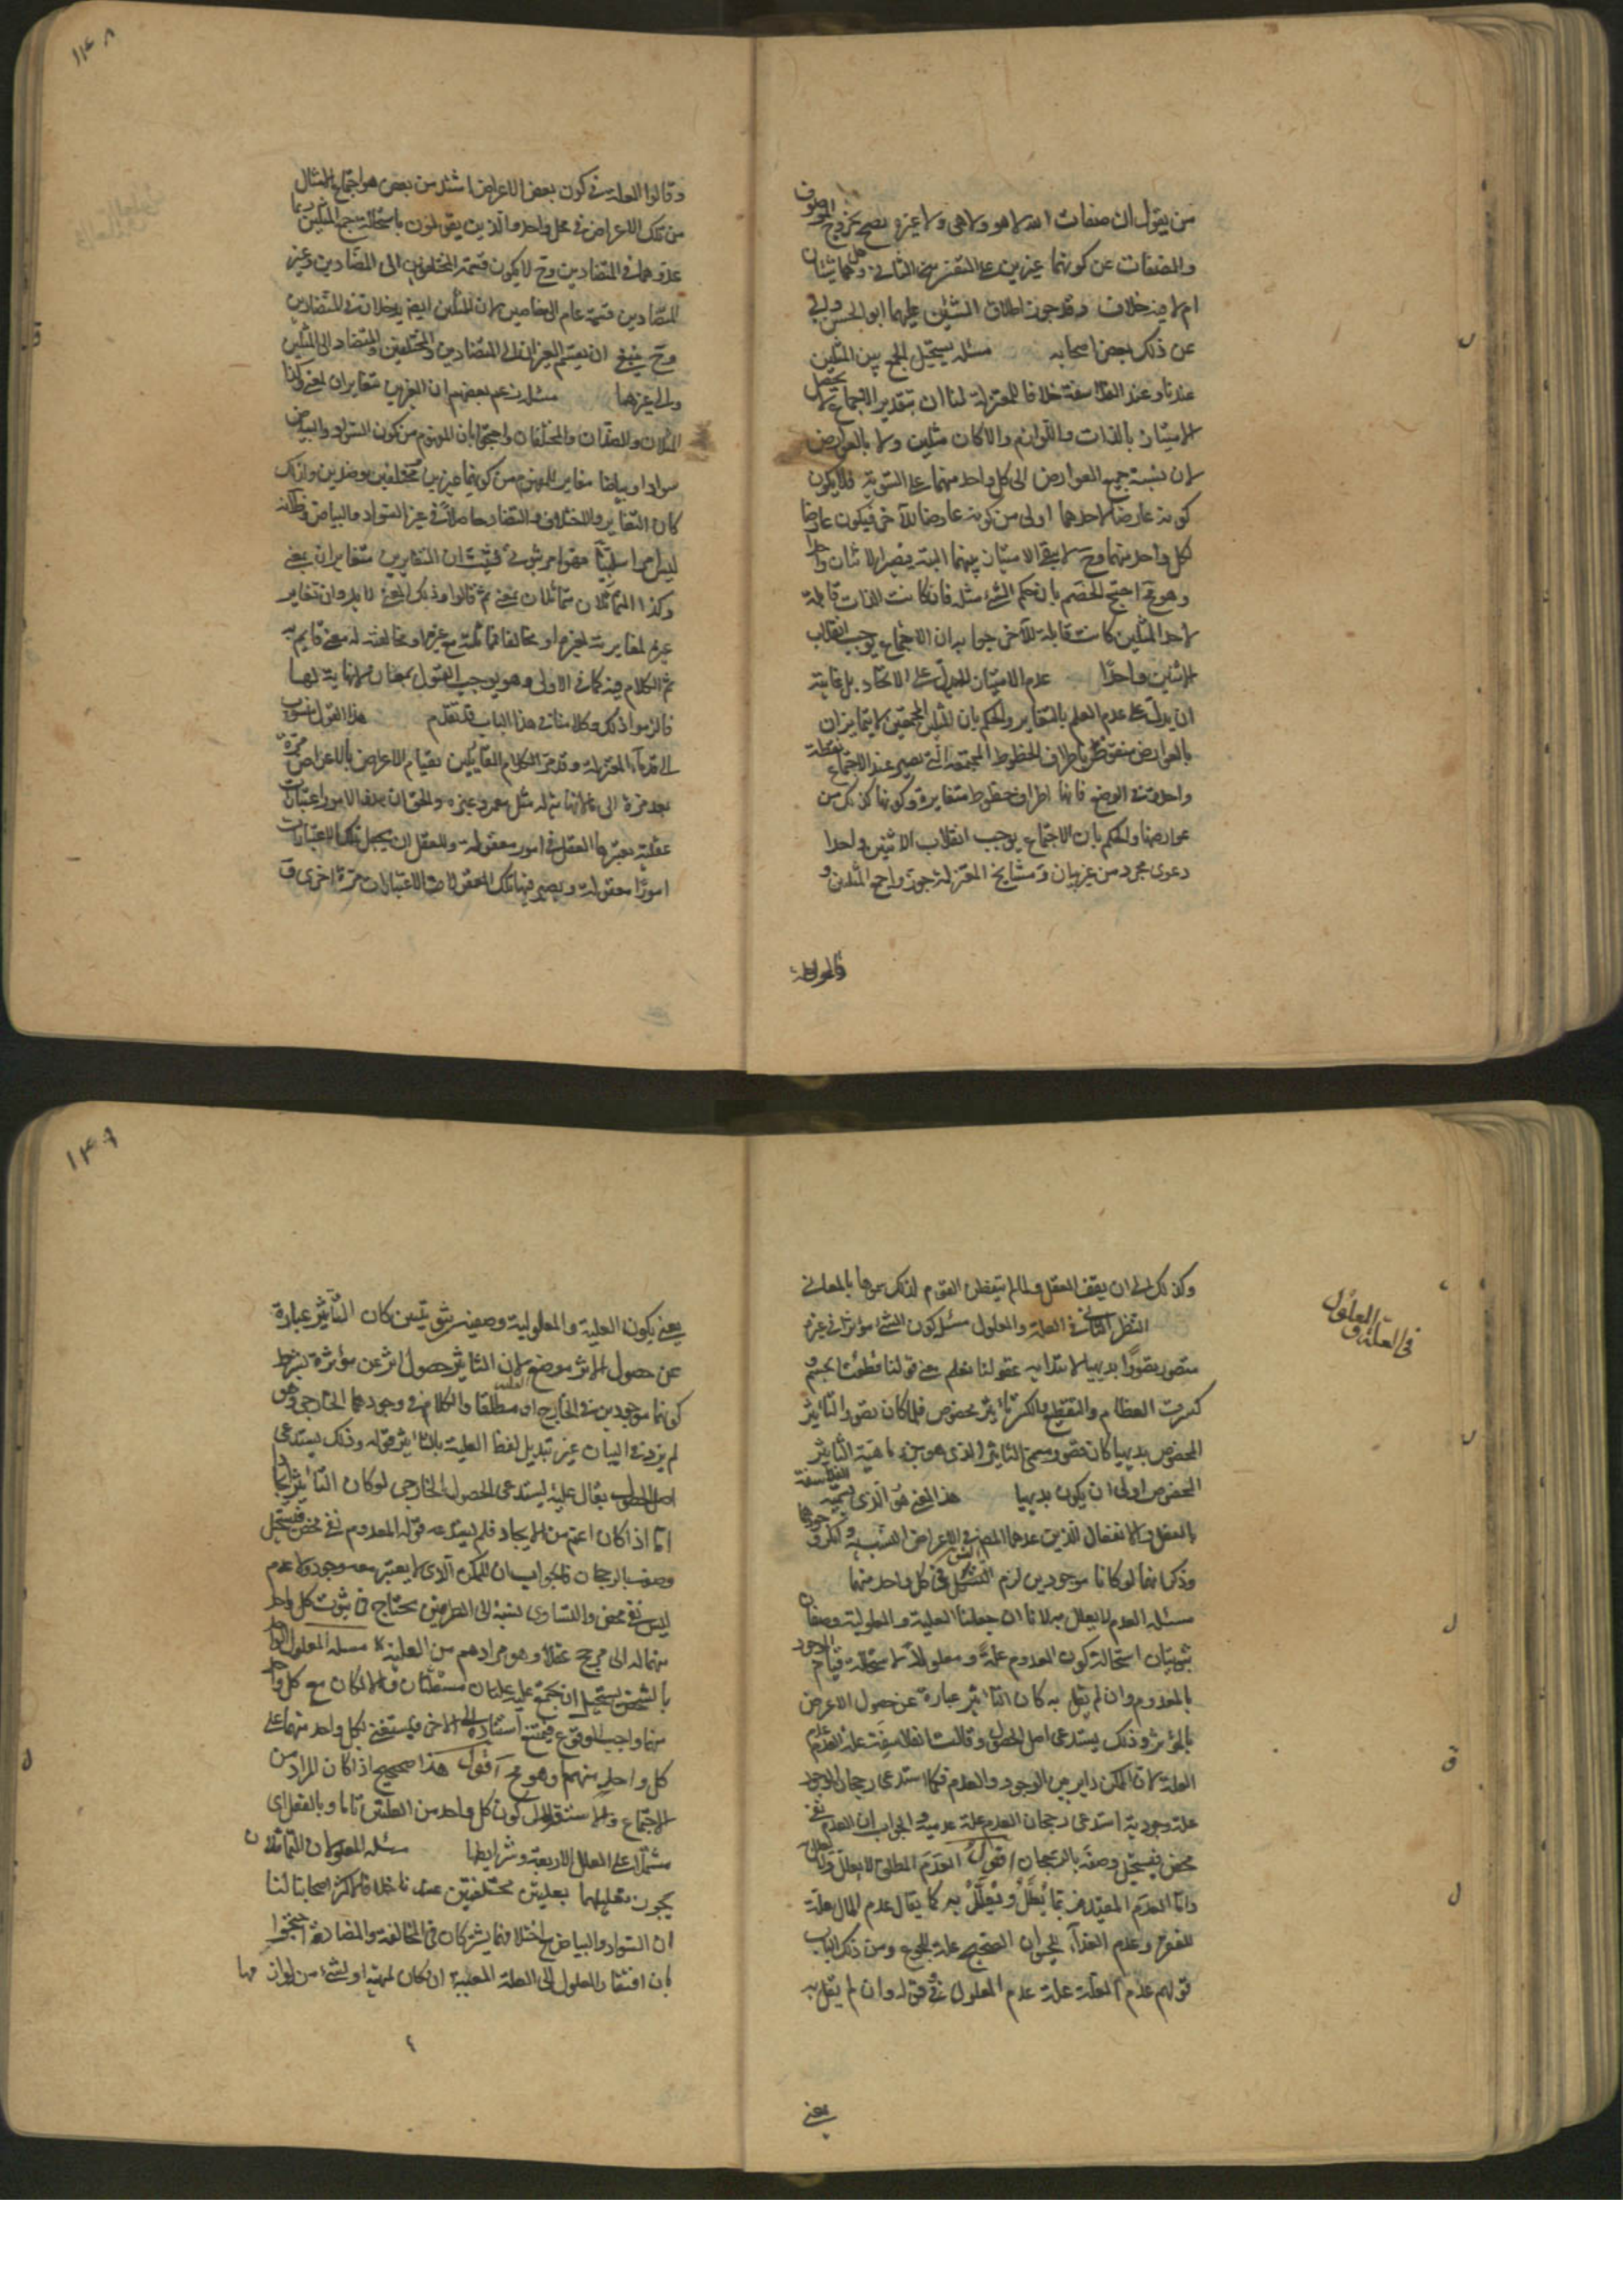 ١٤٨
من يقول ان صفات الله لا هو ولا هى ولا غيره يصح بخروج الموصوف
والصفات عن كونهما غيرين على التفسير الثانى وهل هما شيئان
ام لا فيه خلاف وقد جوز اطلاق الشيئين عليهما ابو الحسن وابى
عن ذلك بعض اصحابه مسئله يستحيل الجمع بين المثلين
عندنا وعند الفلاسفة خلافا للمعتزلة لنا ان بتقدير الاجتماع لا يحصل
الامتياز بالذات واللوازم والا لكان مثلين ولا بالعوارض
لان نسبة جميع العوارض الى كل واحد منهما على السوية فلا يكون
كونه عارضا لاحدهما اولى من كونه عارضا للآخر فيكون عارضا
لكل واحد منهما وح لا يبقى الامتياز بينهما البتة فيصير الاثنان واحدا
وهو مح احتج الخصم بان حكم الشئ مثله فان كانت الذات قابلة
لاحد المثلين كانت قابلة للآخر جوابه ان الاجتماع يوجب انقلاب
الاثنين واحدًا عدم الامتياز لا يدل على الاتحاد بل غايته
ان يدل على عدم العلم بالتغاير والحكم بان المثلين المجتمعين لا يتمايزان
بالعوارض منقوض باطراف الخطوط المجتمعة التى تصير عند الاجتماع نقطة
واحدة فى الوضع فانها اطراف خطوط متغايرة وكونها كذلك من
عوارضها والحكم بان الاجتماع يوجب انقلاب الاثنين واحدا
دعوى مجرد من غير بيان ومشايخ المعتزلة جوزوا جمع المثلين و
قالوا العلة
وقالوا العلة فى كون بعض الاعراض اشد من بعض هو اجتماع الامثال
من تلك الاعراض فى محل واحد والذين يقولون باستحالة جمع المثلين ربما
عدوهما فى المتضادين وح لا يكون قسمة المختلفين الى المتضادين وغير
المتضادين قسمة عام الى خاصين لان المثلين ايضا يدخلان فى المتضادين
وح ينبغى ان يقسم الغيران الى المتضادين والمختلفين والمتضاد الى المثلين
والى غيرهما مسئله زعم بعضهم ان الغيرين متغايران لمعنى وكذا
المثلان والضدان والمختلفان واحتجوا بان المفهوم من كون السواد والبياض
سوادا وبياضا مغاير للمفهوم من كونهما غيرين مختلفين وضدين ولذلك
كان التغاير والاختلاف والتضاد حاصلا فى غير السواد والبياض وظاهر انه
ليس امرا سلبيا فهو امر ثبوتى فثبت ان المتغايرين متغايران بمعنى
وكذا المتماثلان متماثلان بمعنى ثم قالوا وذلك المعنى لا بد وان تغاير
غيره لمغايرته لغيره او مخالفا مماثلته مع غيره او مخالفته له معنى قايم به
ثم الكلام فيه كما فى الاول وهو يوجب القول بمعان لا نهاية لها
فالتزموا ذلك وكلامنا فى هذا الباب قد تقدم هذا القول منسوب
الى قدماء المعتزلة وقدماء الكلام القايلين بقيام الاعراض بالاعراض مرة
بعد مرة الى غير النهاية مثل معمر وغيره والحق ان هذه الامور اعتبارات
عقلية يعتبرها العقل فى امور معقولة وللعقل ان يجعل تلك الاعتبارات
امورًا معقولة ويصير فيها تلك المعقولات الاعتبارات مرة اخرى و
١٤٩
فى العلة والمعلول
وكذلك الى ان يقف العقل ولما لم يتفطن القوم لذلك سموها بالمعانى
النظر الثانى فى العلة والمعلول مسئله كون الشئ مؤثرا فى غيره
متصور تصورًا بديهيا لانا ببداية عقولنا نعلم معنى قولنا قطعت الجسم و
كسرت العظام والتقطيع والكسر تاثير مخصوص فلما كان تصور التاثير
المخصوص بديهيا كان تصور مسمى التاثير الذى هو جزء ماهية التاثير
المخصوص اولى ان يكون بديهيا هذا المعنى هو الذى تسميه الفلاسفة
بالفعل والانفعال الذين عدهما المص فى الاعراض النسبية وانكر وجودهما
وذكر انهما لو كانا موجودين لزم التسلسل فى كل واحد منهما
مسئله العدم لا يعلل به لانا ان جعلنا العلية والمعلولية وصفان
ثبوتيان استحالة كون المعدوم علة ومعلولا لاستحالة قيام الموجود
بالمعدوم وان لم نقل به كان التاثير عبارة عن حصول الاعرض
بالمؤثر وذلك يستدعى اصل الحصول وقالت الفلاسفة علة العدم عدم
العلة لان الممكن داير بين الوجود والعدم فكما استدعى رجحان الوجود
علة وجودية استدعى رجحان العدم علة عدمية والجواب ان العدم نفى
محض فيستحيل وصفه بالرجحان اقول العدم المطلق لا يعلل ولا يعلل به
واما العدم المقيد فربما يُعَلَّلُ ويُعَلَّلُ به كما يقال عدم المال علة
للفقر وعدم الغذاء للحيوان الصحيح علة للجوع ومن ذلك الباب
قولهم عدم العلة علة عدم المعلول فى قوله وان لم يقل به
يعنى
يعنى بكون العلية والمعلولية وصفين ثبوتيتين كان التاثير عبارة
عن حصول الاثر موضع لان التاثير حصول اثر عن مؤثره بشرط
كونهما موجودين فى الخارج او العقل مطلقا والكلام فى وجودهما الخارجى وهو
لم يزد فى البيان غير تبديل لفظ العلية بالتاثير قوله وذلك يستدعى
اصل الحصول يقال عليه يستدعى الحصول الخارجى لو كان التاثير ايجابا
اما اذا كان اعم من الايجاد فلم يستدعه قوله المعدوم نفى محض فيستحيل
وصفه بالرجحان فالجواب ان الممكن الذى لا يعتبر معه وجود ولا عدم
ليس نفى محض والتساوى نسبته الى الطرفين يحتاج فى ثبوت كل واحد
منهما له الى مرجح عقلا وهو مرادهم من العلية مسئله المعلول الواحد
بالشخص يستحيل ان يجتمع عليه علتان مستقلتان والا لكان مع كل واحد
منهما واجب الوقوع فيمتنع استناده الى الآخر فيستغنى بكل واحد منهما عن
كل واحد منهما وهو مح اقول هذا صحيح اذا كان المراد من
الاجتماع والاستقلال كون كل واحد من العلتين تاما وبالفعل اى
مشتملا على العلل الاربعة وشرايطها مسئله المعلولان المتماثلان
يجوز تعليلهما بعلتين مختلفتين عندنا خلافا لاكثر اصحابنا لنا
ان السواد والبياض مع اختلافهما يشتركان فى المخالفة والمضادة احتجوا
بان افتقار المعلول الى العلة المعينة ان كان لمهيته او لشئ من لوازمها